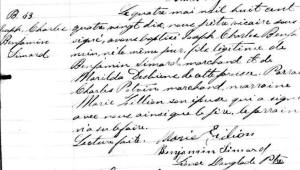 B. 53
Joseph, Charles
Benjamin
Simard
Le quatre mai mil huit cent
quatre vingt dix, nous prêtre vicaire sous
signé, avons baptisé Joseph Charles Benja
min, né le même jour, fils légitime de
Benjamin Simard, marchand et de
Marilda Dechêne de cette paroisse. Parrain
Charles Potvin marchand, marraine
Marie Zillion son épouse qui a signé
avec nous ainsi que le père, le parrain
n'a su le faire.
Lecture faite. Marie Zilion
Benjamin Simard
Ptre